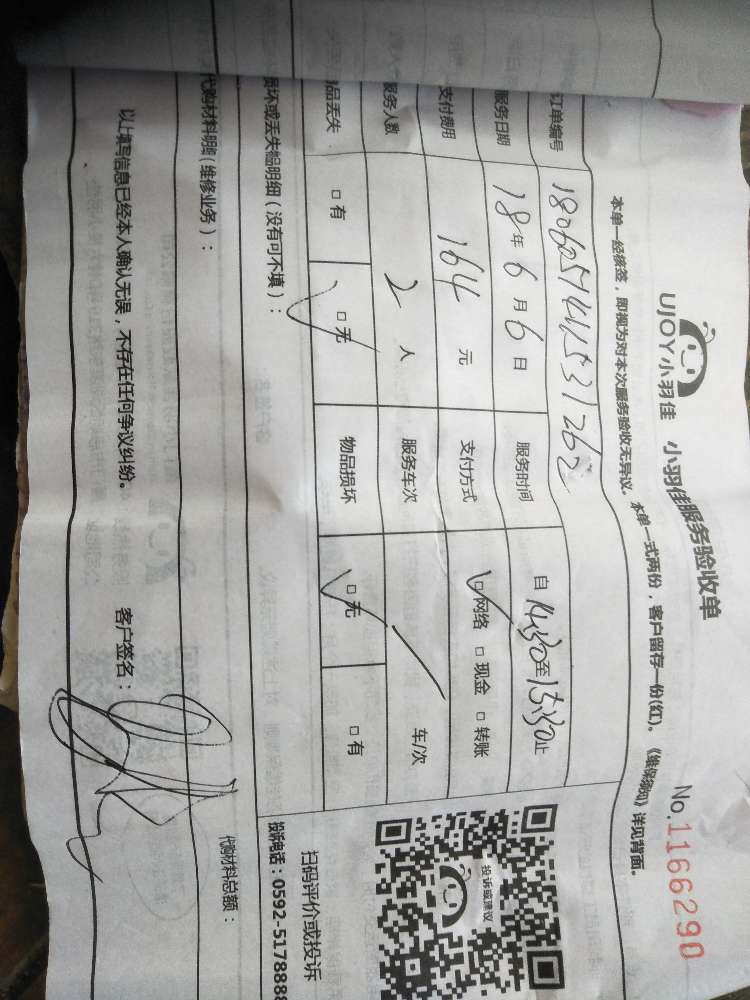 UJOY小羽佳 小羽佳服务验收单
No.1166290
本单一经核签，即视为对本次服务验收无异议。本单一式两份，客户留存一份(红)。《维保须知》详见背面。
订单编号 180605741531262
服务日期 18年6月6日 服务时间 自14:30至15:30止
支付费用 164元 支付方式 □网络 □现金 □转账
服务人数 2人 服务车次 / 车/次
品丢失 □有 □无 物品损坏 □无 □有
损坏或丢失物品明细（没有可不填）：
代购材料明细（维修业务）：
代购材料总额：
以上填写信息已经本人确认无误，不存在任何争议纠纷。 客户签名：
投诉或建议
扫码评价或投诉
投诉电话：0592-5178888